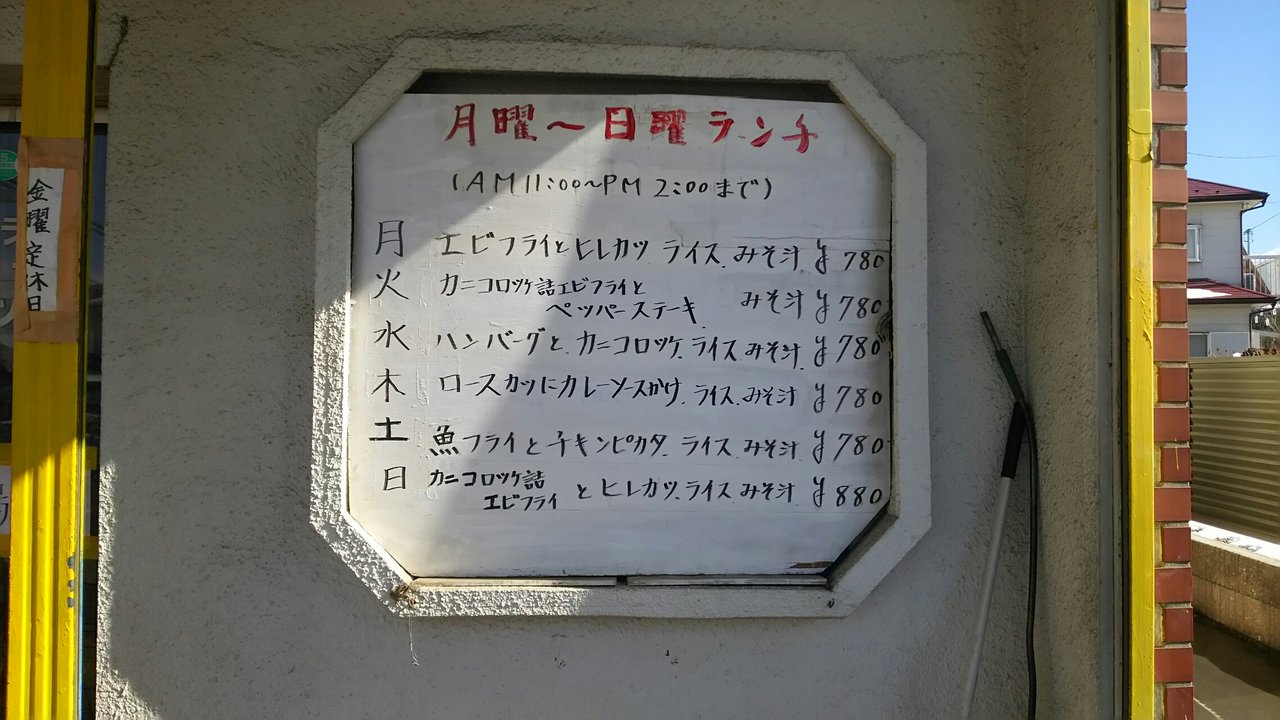 月曜～日曜ランチ
(AM11:00～PM 2:00まで)
月 エビフライとヒレカツ ライス、みそ汁 ¥780
火 カニコロッケ詰エビフライと
ペッパーステーキ、 みそ汁 ¥780
水 ハンバーグと、カニコロッケ、ライス みそ汁、¥780
木 ロースカツにカレーソースかけ、ライス、みそ汁 ¥780
土 魚フライとチキンピカタ、ライス みそ汁 ¥780
日 カニコロッケ詰
エビフライ とヒレカツ、ライス みそ汁 ¥880
金曜定休日